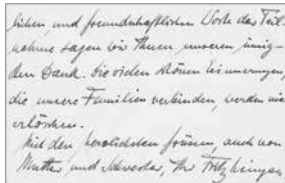 lichen und freundschaftlichen Worte der Teil-
nahme sagen wir Ihnen unseren innig-
sten Dank. Die vielen schönen Erinnerungen,
die unsere Familien verbinden, werden nie
erlöschen.
Mit den herzlichsten Grüssen, auch von
Mutter und Schwester, Ihr Fritz